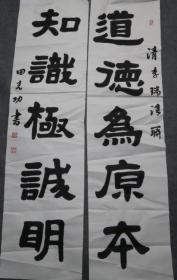 道德為原本
清李瑞清聯
知識極誠明
田克功書